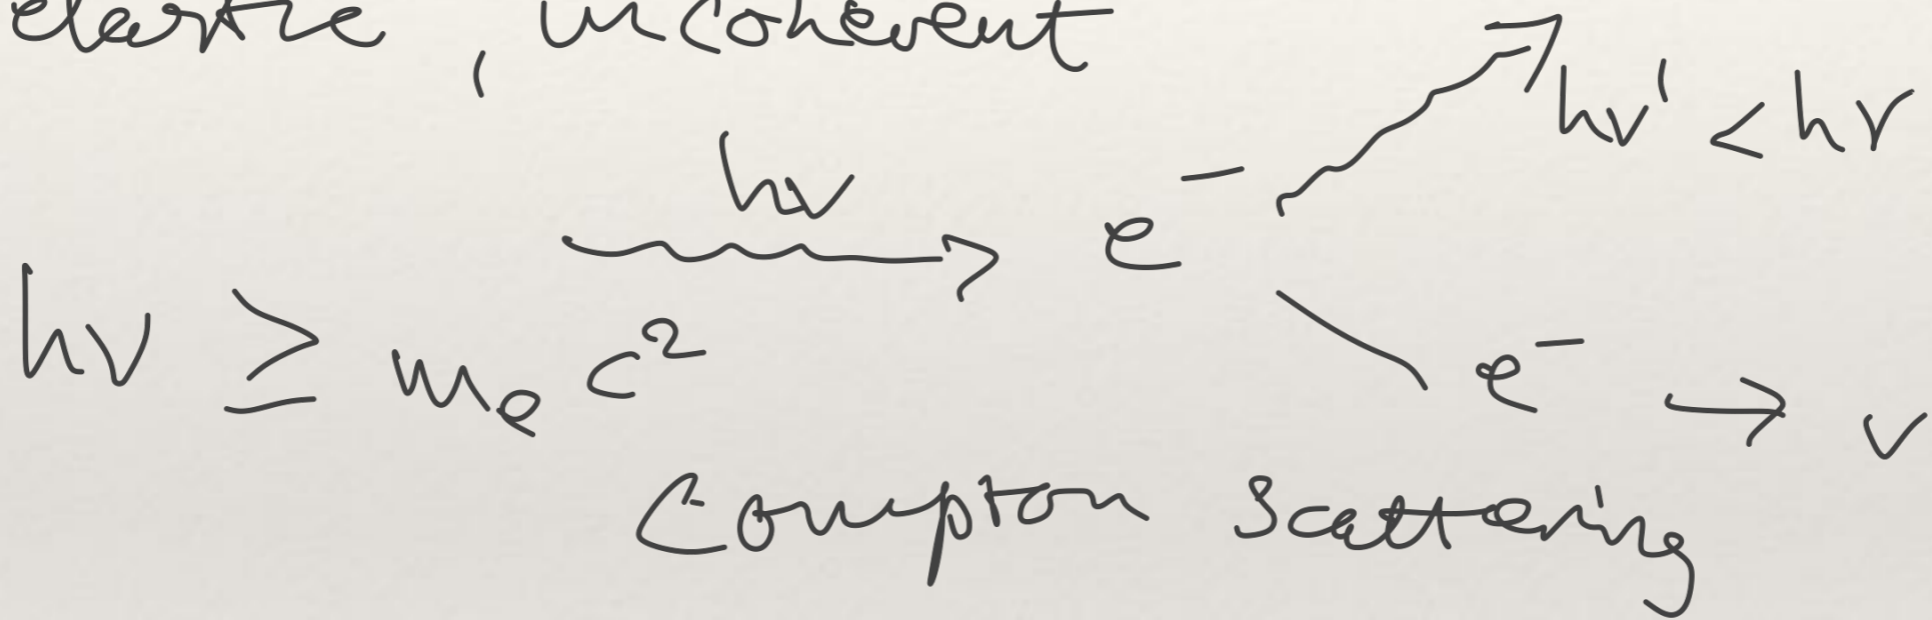 elastic, incoherent
hν' < hν
hν
e⁻
hν ≥ mₑc²
e⁻ → v
Compton Scattering